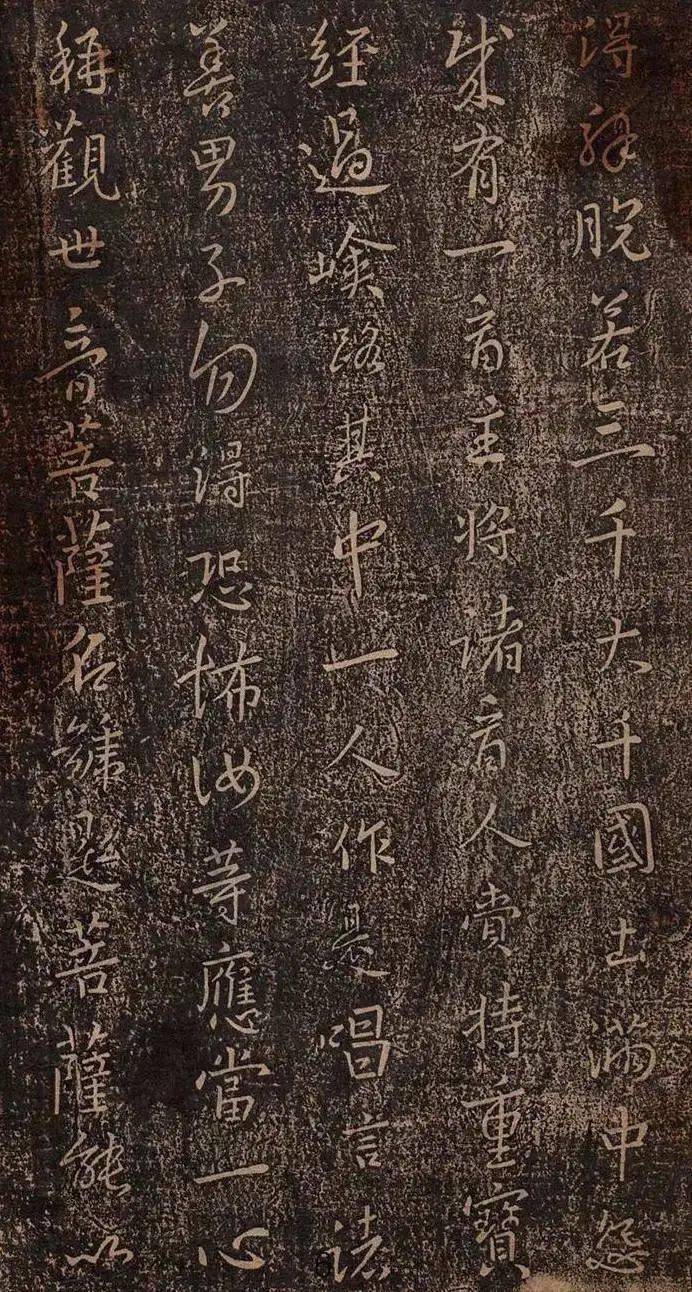 得解脫若三千大千國土滿中怨
賊有一商主將諸商人賫持重寶
經過嶮路其中一人作是唱言諸
善男子勿得恐怖汝等應當一心
稱觀世音菩薩名號是菩薩能以